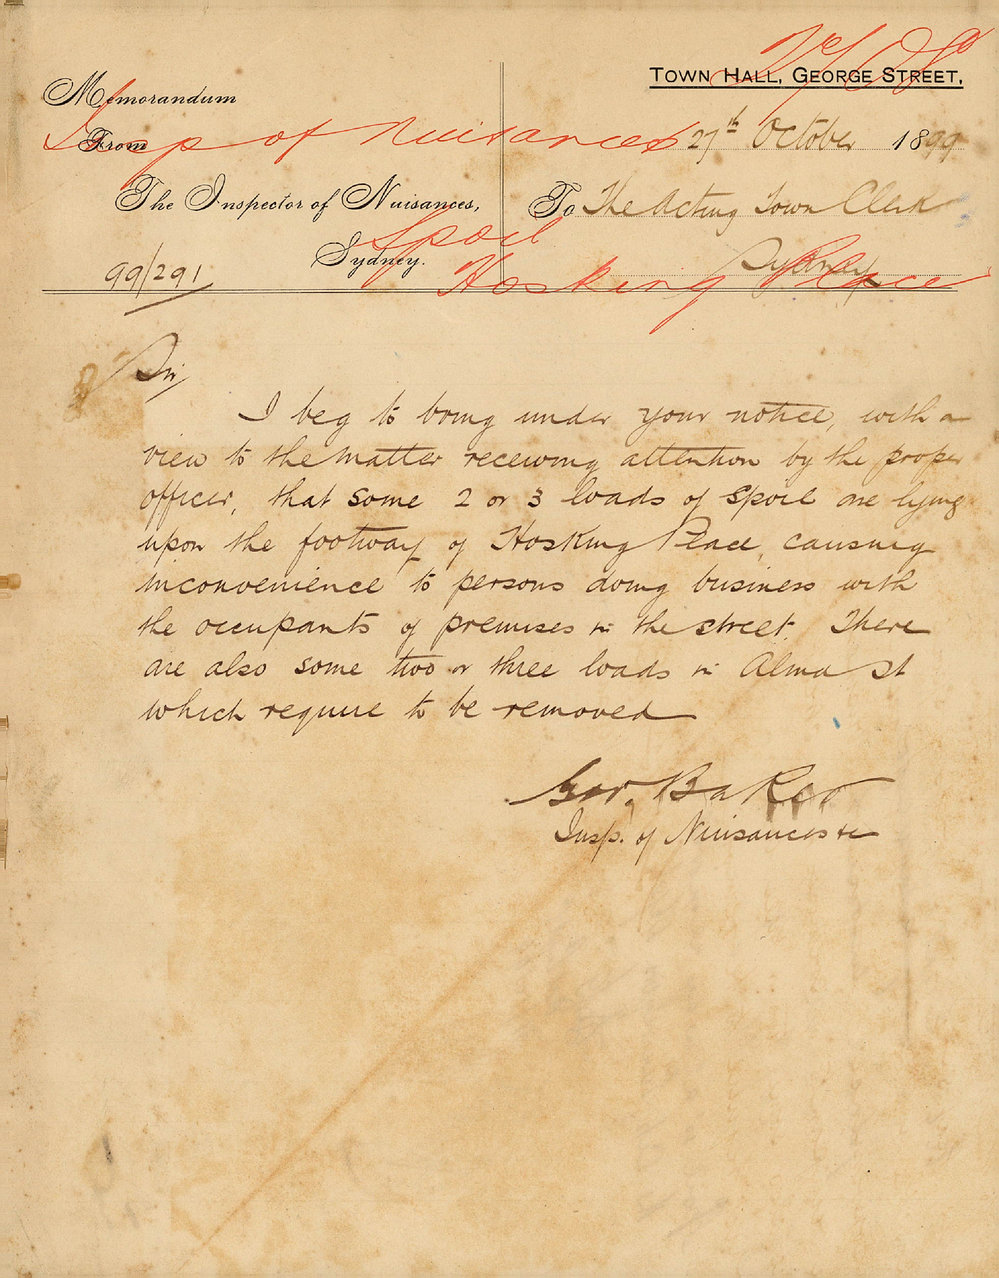 Town Hall, George Street,
Memorandum
From
Insp of Nuisances
27th October 1899
The Inspector of Nuisances,
To The Acting Town Clerk
Spoil
Sydney.
Sydney
Hosking Place
99/291
Sir,
I beg to bring under your notice, with a
view to the matter receiving attention by the proper
officer, that some 2 or 3 loads of spoil are lying
upon the footway of Hosking Place, causing
inconvenience to persons doing business with
the occupants of premises in the street. There
are also some two or three loads in Alma St
which require to be removed
Geo. Baker
Insp. of Nuisances &c